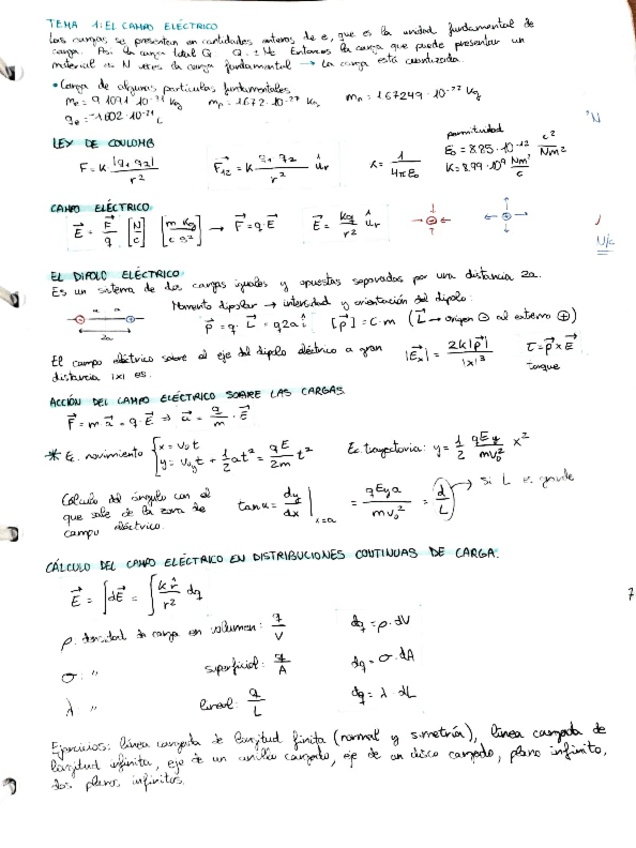 TEMA 1: EL CAMPO ELÉCTRICO
Las cargas se presentan en cantidades enteras de e, que es la unidad fundamental de
carga. Así la carga total Q Q = Ne Entonces la carga que puede presentar un
material es N veces la carga fundamental → la carga está cuantizada.
• Carga de algunas partículas fundamentales
me = 9'1091·10⁻³¹ Kg mp = 1'672·10⁻²⁷ Kg mn = 1'67249·10⁻²⁷ Kg
qe = -1'602·10 C
LEY DE COULOMB
F = K |q₁ q₂| / r²
F⃗₁₂ = K q₁ q₂ / r² ûr
K = 1 / 4πε₀
permitividad
ε₀ = 8'85·10⁻¹² C² / Nm²
K = 8'99·10⁹ Nm² / C
CAMPO ELÉCTRICO
E⃗ = F⃗ / q [N / C] [m Kg / C s²] → F⃗ = q·E⃗ E⃗ = Kq / r² ûr
N/C
EL DIPOLO ELÉCTRICO
Es un sistema de dos cargas iguales y opuestas separadas por una distancia 2a.
Momento dipolar → intensidad y orientación del dipolo:
a a
2a
p⃗ = q·L⃗ = q2a î [p⃗] = C·m (L⃗ → origen ⊖ al extremo ⊕)
El campo eléctrico sobre el eje del dipolo eléctrico a gran
distancia |x| es.
|E⃗x| = 2K|p⃗| / |x|³
τ = p⃗ × E⃗
torque
ACCIÓN DEL CAMPO ELÉCTRICO SOBRE LAS CARGAS
F⃗ = m·a⃗ = q·E⃗ ⇒ a⃗ = q / m · E⃗
* E. movimiento { x = v₀t
y = v₀yt + 1/2 at² = qE / 2m t²
Ec. trayectoria: y = 1/2 qEy / mv₀² x²
Cálculo del ángulo con el
que sale de la zona de
campo eléctrico.
tanα = dy / dx |x=a = qEya / mv₀² = d / L → si L es grande
CÁLCULO DEL CAMPO ELÉCTRICO EN DISTRIBUCIONES CONTINUAS DE CARGA.
E⃗ = ∫dE⃗ = ∫ K r̂ / r² dq
ρ: densidad de carga en volumen: q / V dq = ρ·dV
σ: " superficial: q / A dq = σ·dA
λ " lineal: q / L dq = λ·dL
Ejercicios: línea cargada de longitud finita (normal y simetría), línea cargada de
longitud infinita, eje de un anillo cargado, eje de un disco cargado, plano infinito,
dos planos infinitos.